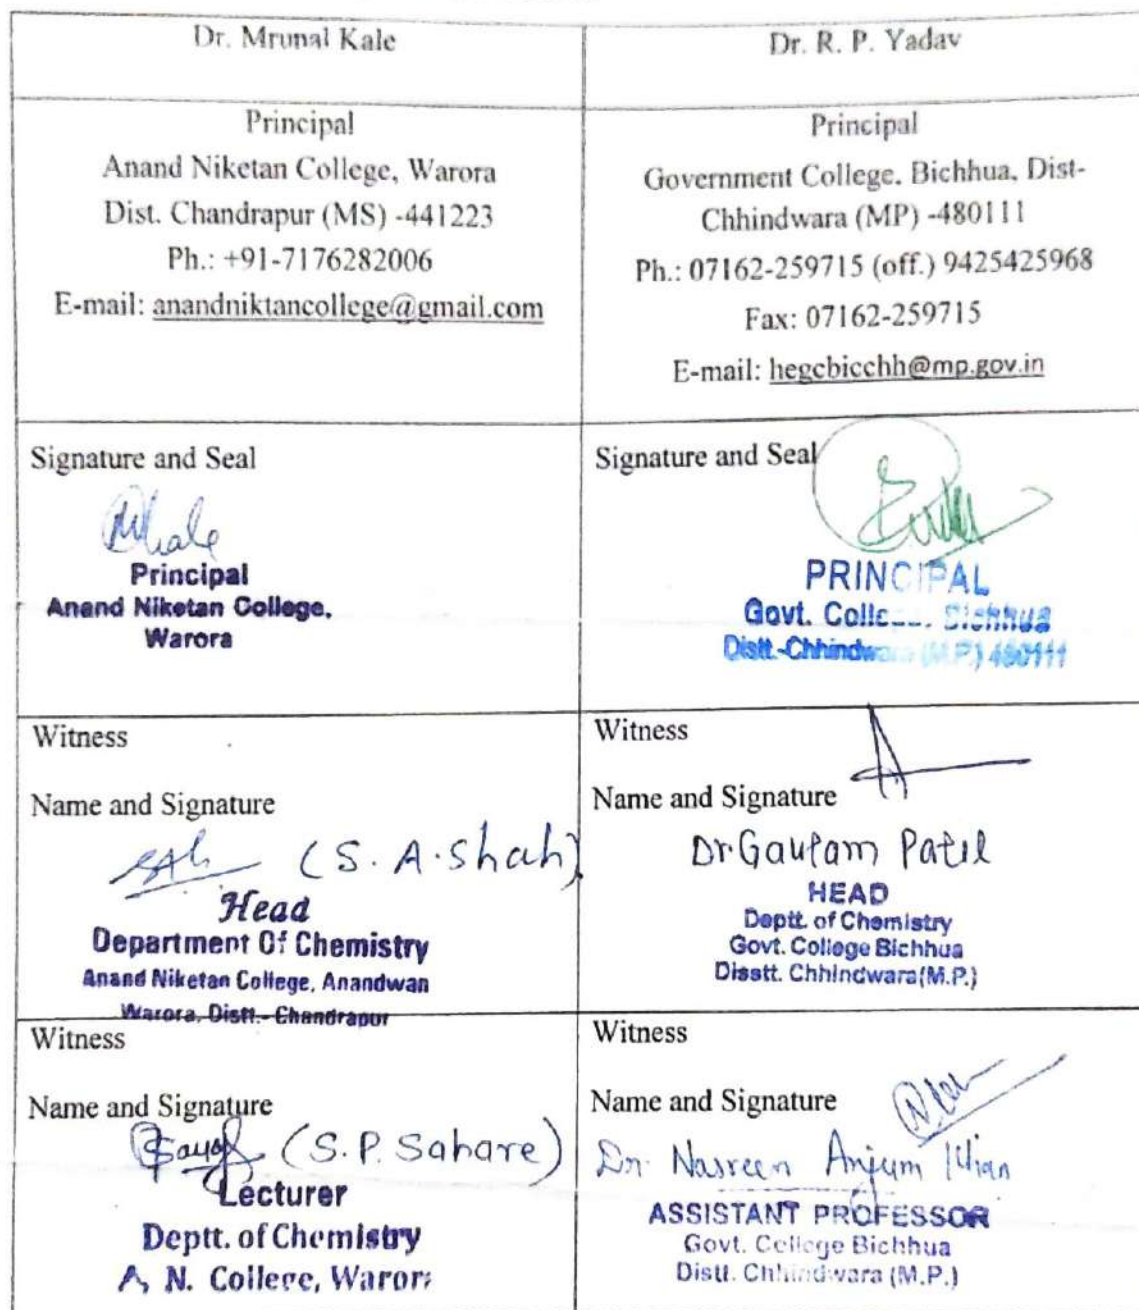 Dr. Mrunal Kale
Dr. R. P. Yadav
Principal
Anand Niketan College, Warora
Dist. Chandrapur (MS) -441223
Ph.: +91-7176282006
E-mail: anandniktancollege@gmail.com
Principal
Government College, Bichhua, Dist-
Chhindwara (MP) -480111
Ph.: 07162-259715 (off.) 9425425968
Fax: 07162-259715
E-mail: hegcbicchh@mp.gov.in
Signature and Seal
Principal
Anand Niketan College,
Warora
Signature and Seal
PRINCIPAL
Govt. College Bichhua
Distt.-Chhindwara (M.P.) 480111
Witness
Name and Signature
(S. A. Shah)
Head
Department Of Chemistry
Anand Niketan College, Anandwan
Warora, Distt.- Chandrapur
Witness
Name and Signature
Dr Gautam Patil
HEAD
Deptt. of Chemistry
Govt. College Bichhua
Disstt. Chhindwara(M.P.)
Witness
Name and Signature
(S. P. Sahare)
Lecturer
Deptt. of Chemistry
A. N. College, Warora
Witness
Name and Signature
Dr. Nasreen Anjum Khan
ASSISTANT PROFESSOR
Govt. College Bichhua
Distt. Chhindwara (M.P.)